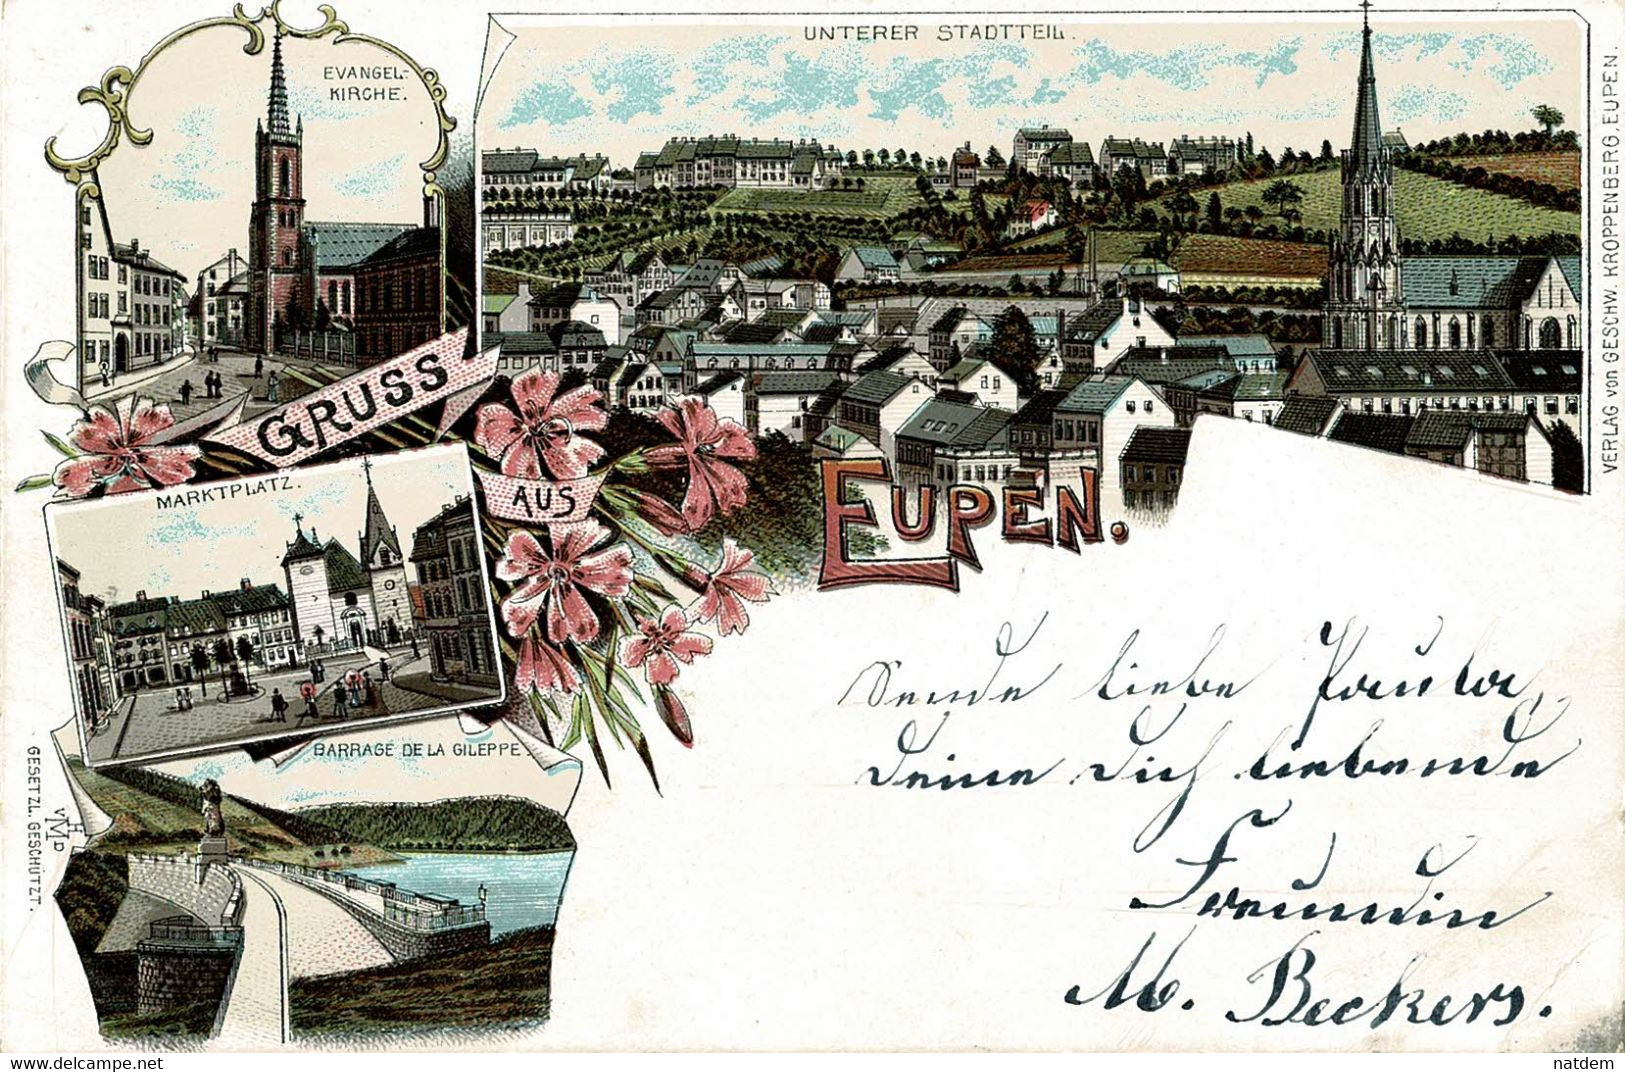 EVANGEL.-
KIRCHE.
UNTERER STADTTEIL.
GRUSS
AUS
EUPEN.
MARKTPLATZ.
BARRAGE DE LA GILEPPE.
GESETZL. GESCHÜTZT.
VERLAG von GESCHW. KROPPENBERG, EUPEN.
Sende liebe Paula,
deine dich liebende
Freundin
M. Beckers.
delcampe.net
natdem